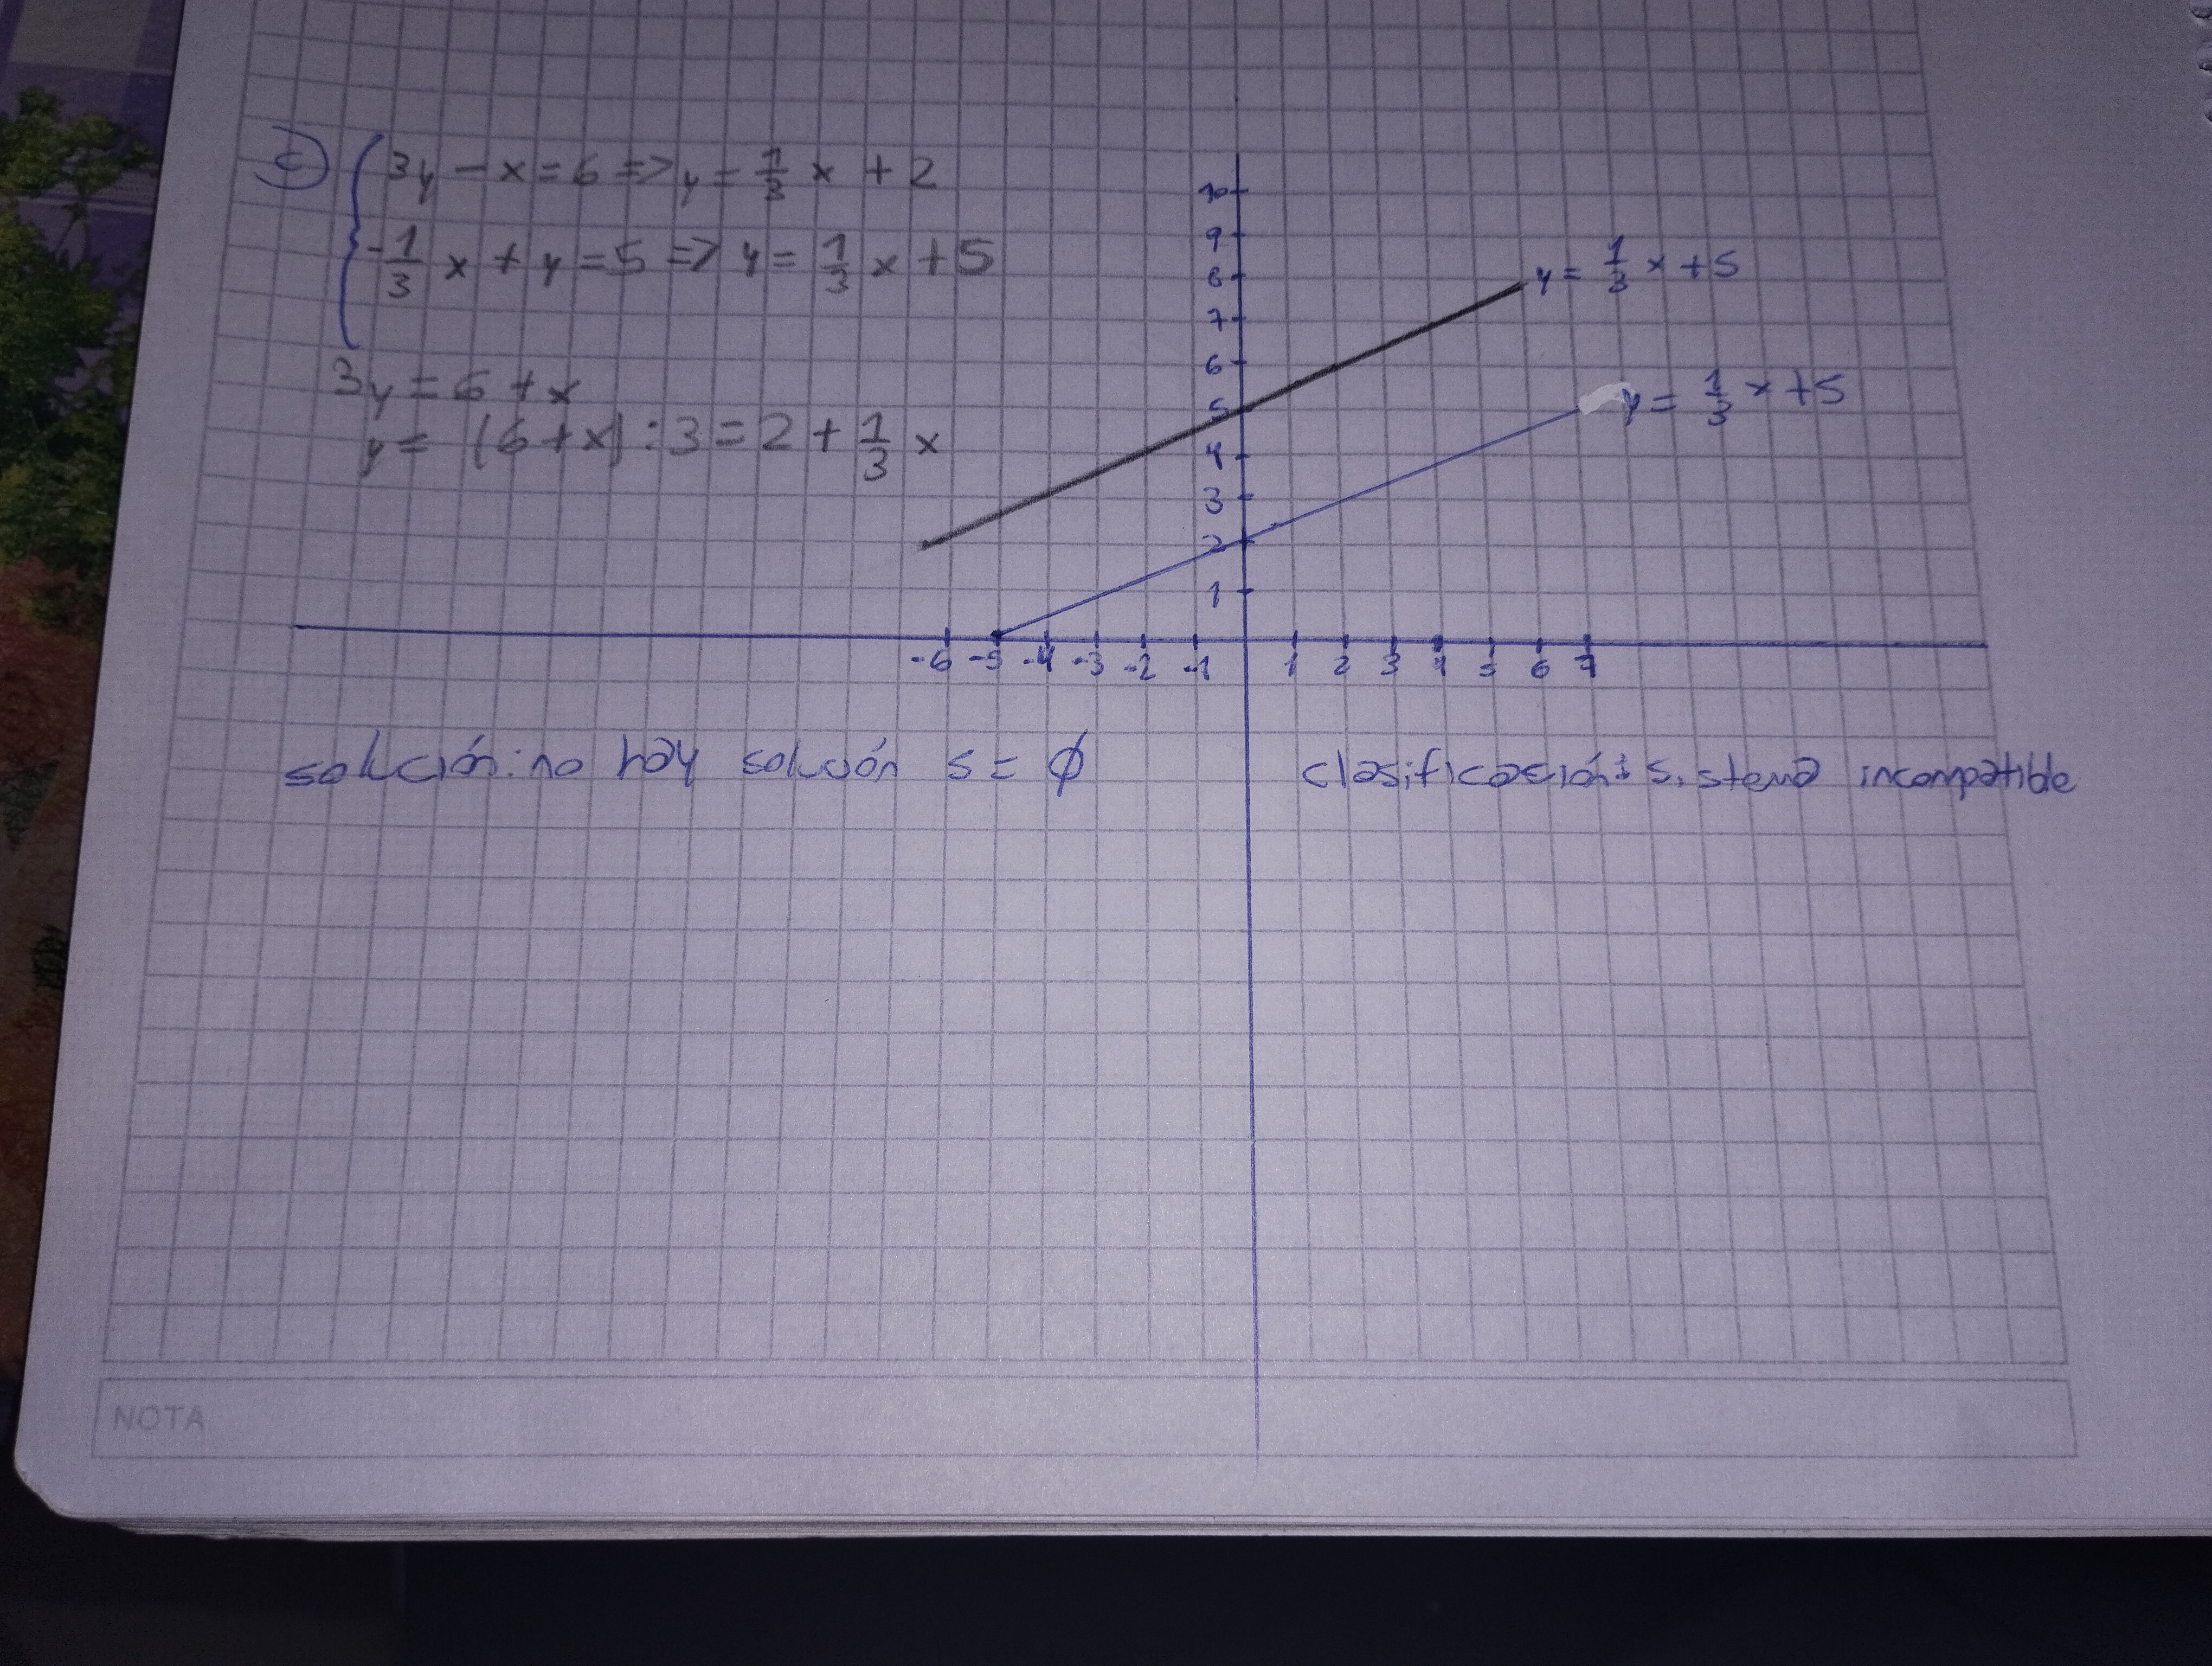 c) 3y - x = 6 => y = 1/3 x + 2
-1/3 x + y = 5 => y = 1/3 x + 5
3y = 6 + x
y = (6 + x) : 3 = 2 + 1/3 x
10
9
8
7
6
5
4
3
2
1
y = 1/3 x + 5
y = 1/3 x + 5
-6 -5 -4 -3 -2 -1 1 2 3 4 5 6 7
solución: no hay solución S = ∅
clasificación: sistema incompatible
NOTA